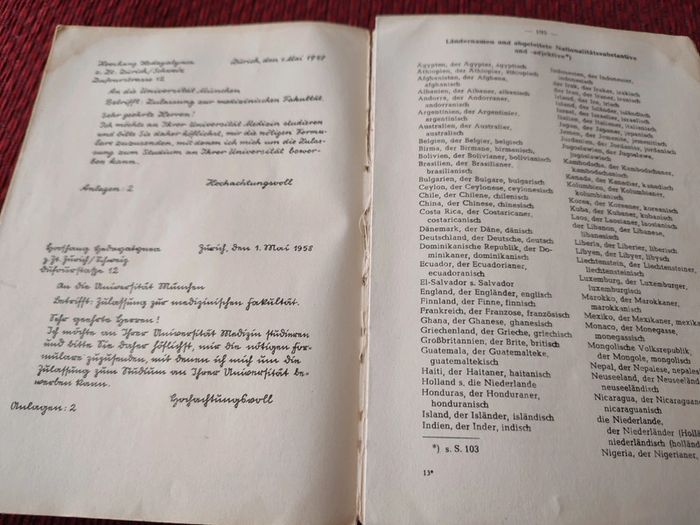 Zürich, den 1. Mai
z. Zt. Zürich/Schweiz
Dufourstrasse 12
An die Universität München
Betrifft: Zulassung zur medizinischen Fakultät.
Sehr geehrte Herren!
Ich möchte an Ihrer Universität Medizin studieren
und bitte Sie daher höflichst, mir die nötigen Formu-
lare zuzusenden, mit denen ich mich um die Zulas-
sung zum Studium an Ihrer Universität bewer-
ben kann.
Hochachtungsvoll
Anlagen: 2
Zürich, den 1. Mai 1958
z. Zt. Zürich/Schweiz
12
An die Universität München
Betrifft: Zulassung zur medizinischen Fakultät.
Sehr geehrte Herren!
Ich möchte an Ihrer Universität Medizin studieren
und bitte Sie daher höflichst, mir die nötigen For-
mulare zuzusenden, mit denen ich mich um die
Zulassung zum Studium an Ihrer Universität be-
werben kann.
Hochachtungsvoll
Anlagen: 2
— 195 —
Ländernamen und abgeleitete Nationalitätssubstantive
und -adjektive*)
Ägypten, der Ägypter, ägyptisch
Äthiopien, der Äthiopier, äthiopisch
Afghanistan, der Afghane,
afghanisch
Albanien, der Albaner, albanisch
Andorra, der Andorraner,
andorranisch
Argentinien, der Argentinier,
argentinisch
Australien, der Australier,
australisch
Belgien, der Belgier, belgisch
Birma, der Birmane, birmanisch
Bolivien, der Bolivianer, bolivianisch
Brasilien, der Brasilianer,
brasilianisch
Bulgarien, der Bulgare, bulgarisch
Ceylon, der Ceylonese, ceylonesisch
Chile, der Chilene, chilenisch
China, der Chinese, chinesisch
Costa Rica, der Costaricaner,
costaricanisch
Dänemark, der Däne, dänisch
Deutschland, der Deutsche, deutsch
Dominikanische Republik, der Do-
minikaner, dominikanisch
Ecuador, der Ecuadorianer,
ecuadoranisch
El-Salvador s. Salvador
England, der Engländer, englisch
Finnland, der Finne, finnisch
Frankreich, der Franzose, französisch
Ghana, der Ghanese, ghanesisch
Griechenland, der Grieche, griechisch
Großbritannien, der Brite, britisch
Guatemala, der Guatemalteke,
guatemaltekisch
Haiti, der Haitaner, haitanisch
Holland s. die Niederlande
Honduras, der Honduraner,
honduranisch
Island, der Isländer, isländisch
Indien, der Inder, indisch
Indonesien, der Indonesier,
indonesisch
Irak, der Iraker, irakisch
Iran, der Iraner, iranisch
Irland, der Ire, irisch
Island, der Isländer, isländisch
Israel, der Israeli, israelisch
Italien, der Italiener, italienisch
Japan, der Japaner, japanisch
Jemen, der Jemenite, jemenitisch
Jordanien, der Jordanier, jordanisch
Jugoslawien, der Jugoslawe,
jugoslawisch
Kambodscha, der Kambodschaner,
kambodschanisch
Kanada, der Kanadier, kanadisch
Kolumbien, der Kolumbianer,
kolumbianisch
Korea, der Koreaner, koreanisch
Kuba, der Kubaner, kubanisch
Laos, der Laosianer, laosianisch
der Libanon, der Libanese,
libanesisch
Liberia, der Liberier, liberisch
Libyen, der Libyer, libysch
Liechtenstein, der Liechtensteiner,
liechtensteinisch
Luxemburg, der Luxemburger,
luxemburgisch
Marokko, der Marokkaner,
marokkanisch
Mexiko, der Mexikaner, mexika
Monaco, der Monegasse,
monegassisch
Mongolische Volksrepublik,
der Mongole, mongolisch
Nepal, der Nepalese, nepalesi
Neuseeland, der Neuseeländ
neuseeländisch
Nicaragua, der Nicaraguane
nicaraguanisch
die Niederlande,
der Niederländer (Hollä
niederländisch (holländ
Nigeria, der Nigerianer,
*) s. S. 103
13*